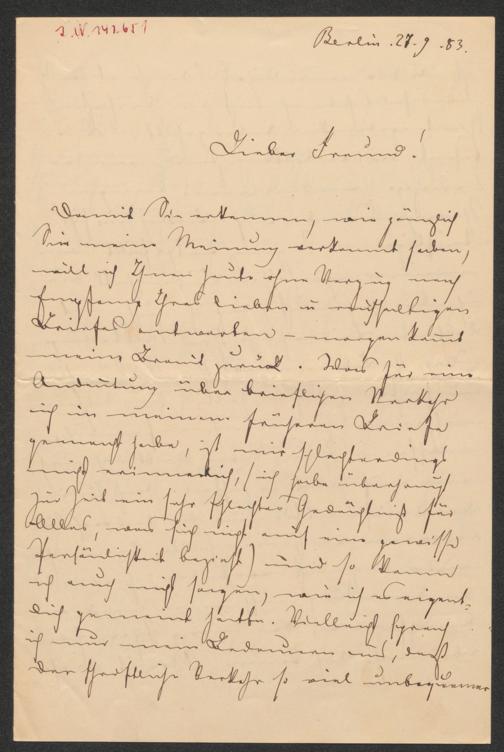 I.N. 141.651
Berlin . 27. 9 . 83.
Lieber Freund!
Damit Sie erkennen, wie gänzlich
Sie meine Meinung verkannt haben,
will ich Ihnen heute ohne Verzug nach
Empfang Ihres lieben u reichhaltigen
Briefes antworten – morgen kommt
meine Braut zurück. Was für eine
Andeutung über brieflichen Verkehr
ich in meinem früheren Briefe
gemacht habe, ist mir schlechterdings
nicht erinnerlich, (ich habe überhaupt
zur Zeit ein sehr schlechtes Gedächtniß für
Alles, was sich nicht auf eine gewisse
Persönlichkeit bezieht) und so kann
ich auch nicht sagen, wie ich es eigent-
lich gemeint hatte. Vielleicht sprach
ich nur mein Bedauern aus, daß
der schriftliche Verkehr so viel unbequemer